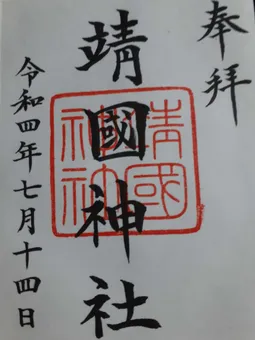 奉拝
靖國神社
靖國
神社
令和四年七月十四日